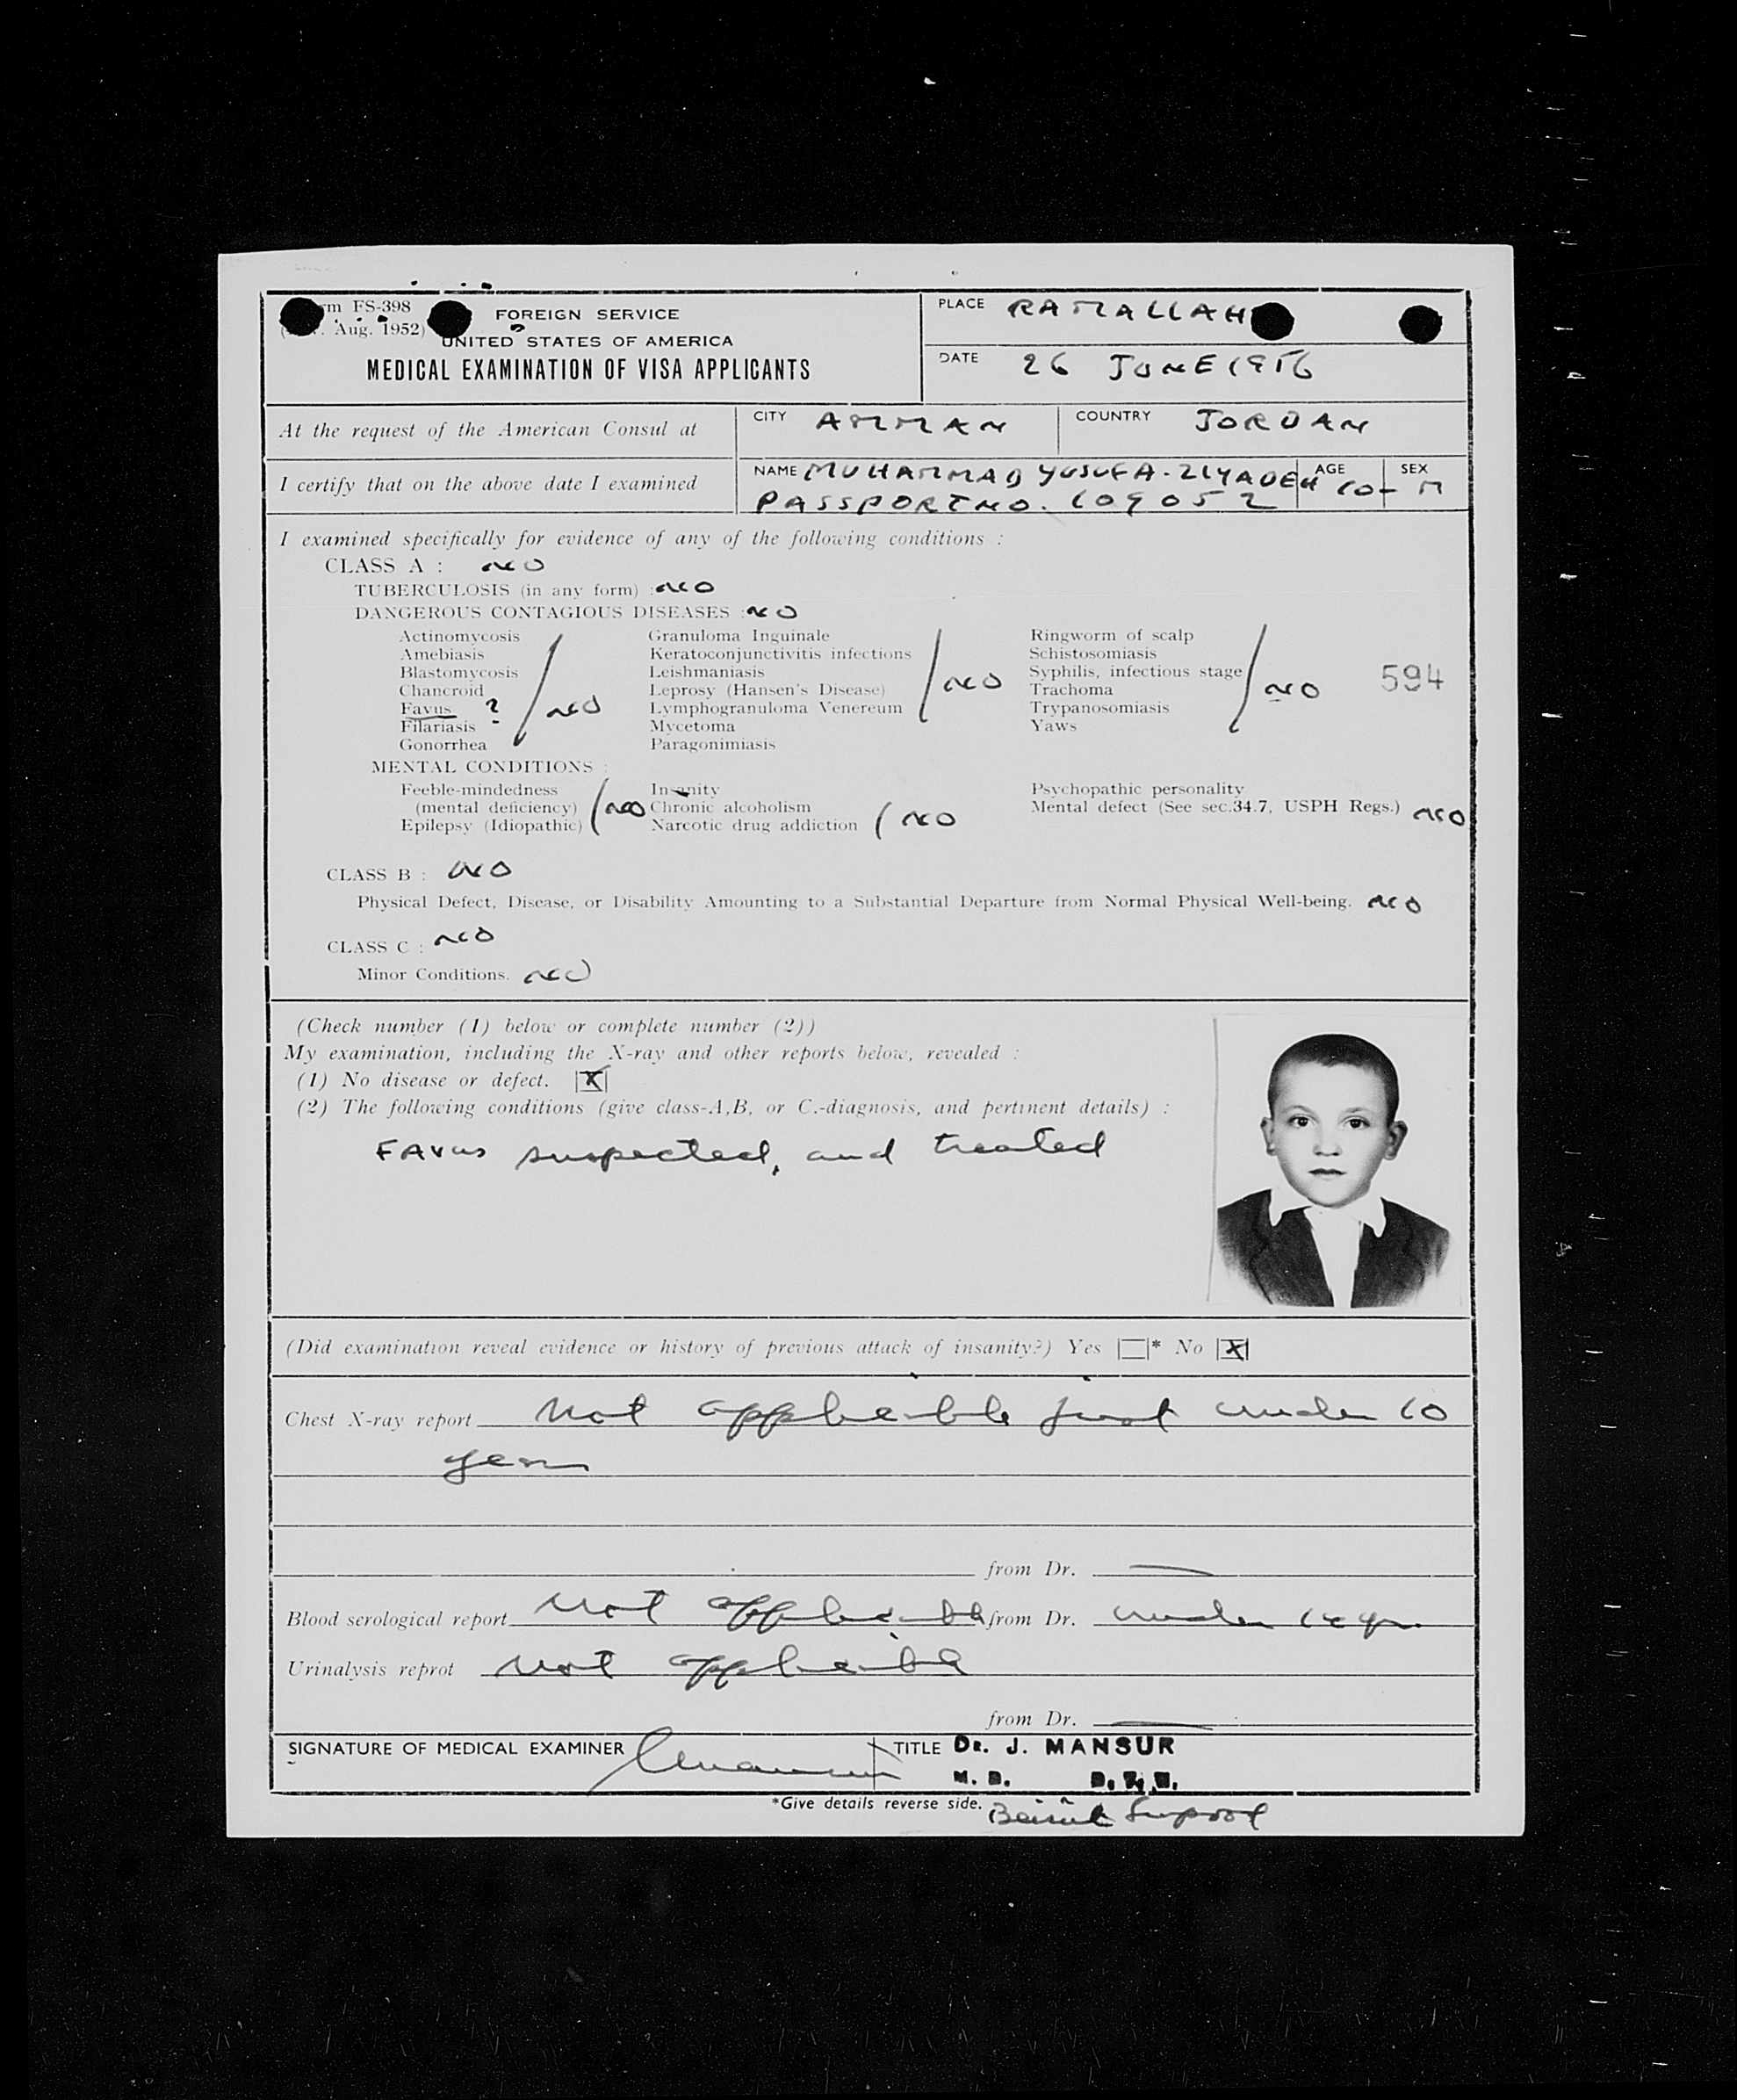 m FS-398
Aug. 1952)
FOREIGN SERVICE
UNITED STATES OF AMERICA
MEDICAL EXAMINATION OF VISA APPLICANTS
PLACE RAMALLAH
DATE 26 JUNE 1956
At the request of the American Consul at
CITY AMMAN
COUNTRY JORDAN
I certify that on the above date I examined
NAME MUHAMMAD YUSUF A. ZIYADEH
PASSPORT NO. 109052
AGE 10-
SEX M
I examined specifically for evidence of any of the following conditions :
CLASS A : NO
TUBERCULOSIS (in any form) : NO
DANGEROUS CONTAGIOUS DISEASES : NO
Actinomycosis
Amebiasis
Blastomycosis
Chancroid
Favus ?
Filariasis
Gonorrhea
NO
Granuloma Inguinale
Keratoconjunctivitis infections
Leishmaniasis
Leprosy (Hansen's Disease)
Lymphogranuloma Venereum
Mycetoma
Paragonimiasis
NO
Ringworm of scalp
Schistosomiasis
Syphilis, infectious stage
Trachoma
Trypanosomiasis
Yaws
NO
594
MENTAL CONDITIONS :
Feeble-mindedness
(mental deficiency)
Epilepsy (Idiopathic)
NO
Insanity
Chronic alcoholism
Narcotic drug addiction
NO
Psychopathic personality
Mental defect (See sec.34.7, USPH Regs.) NO
CLASS B : NO
Physical Defect, Disease, or Disability Amounting to a Substantial Departure from Normal Physical Well-being. NO
CLASS C : NO
Minor Conditions. NO
(Check number (1) below or complete number (2))
My examination, including the X-ray and other reports below, revealed :
(1) No disease or defect. X
(2) The following conditions (give class-A,B, or C.-diagnosis, and pertinent details) :
FAVus suspected, and treated
(Did examination reveal evidence or history of previous attack of insanity?) Yes * No X
Chest X-ray report Not applicable just under 10
years
from Dr.
Blood serological report Not applicable from Dr. under 14 yr.
Urinalysis reprot Not applicable
from Dr.
SIGNATURE OF MEDICAL EXAMINER
TITLE Dr. J. MANSUR
M. D.
*Give details reverse side.
Beirut